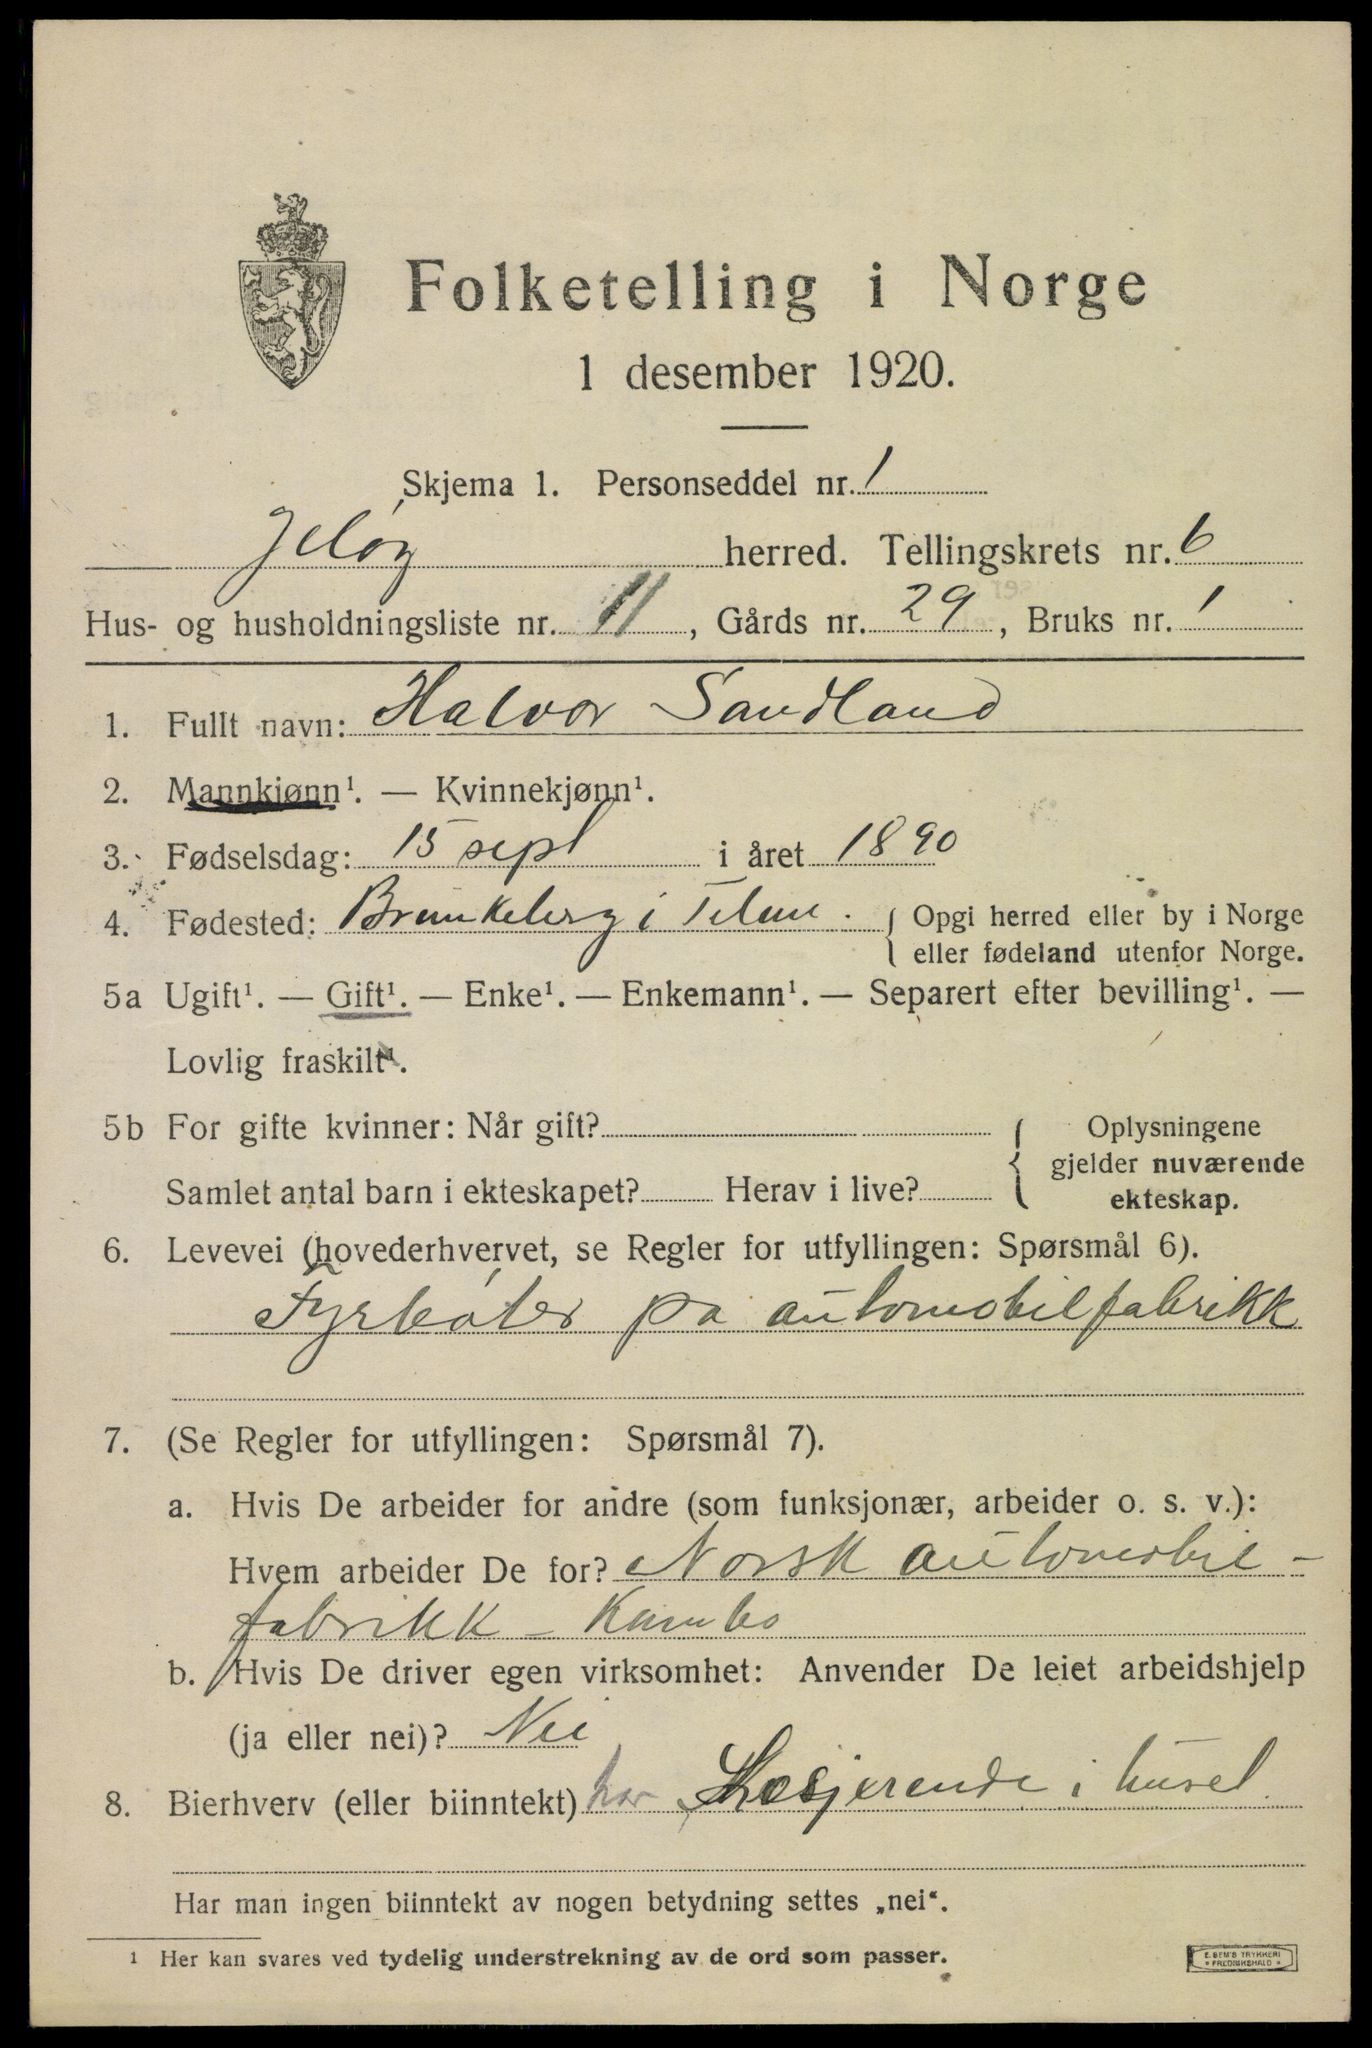 Folketelling i Norge
1 desember 1920.
Skjema 1. Personseddel nr. 1
Jeløy herred. Tellingskrets nr. 6
Hus- og husholdningsliste nr. 11, Gårds nr. 29, Bruks nr. 1
1. Fullt navn: Halvor Sandland
2. Mannkjønn¹. — Kvinnekjønn¹.
3. Fødselsdag: 15 sept i året 1890
4. Fødested: Brunkeberg i Telem. { Opgi herred eller by i Norge
eller fødeland utenfor Norge.
5a Ugift¹. — Gift¹. — Enke¹. — Enkemann¹. — Separert efter bevilling¹. —
Lovlig fraskilt¹.
5b For gifte kvinner: Når gift?
Samlet antal barn i ekteskapet? Herav i live?
Oplysningene
gjelder nuværende
ekteskap.
6. Levevei (hovederhvervet, se Regler for utfyllingen: Spørsmål 6).
Fyrbøter på automobilfabrikk
7. (Se Regler for utfyllingen: Spørsmål 7).
a. Hvis De arbeider for andre (som funksjonær, arbeider o. s. v.):
Hvem arbeider De for? Norsk automobil-
fabrikk - Kambo
b. Hvis De driver egen virksomhet: Anvender De leiet arbeidshjelp
(ja eller nei)? Nei
8. Bierhverv (eller biinntekt) har Losjerende i huset
Har man ingen biinntekt av nogen betydning settes „nei“.
¹ Her kan svares ved tydelig understrekning av de ord som passer.
E. SEM'S TRYKKERI
* FREDRIKSHALD *